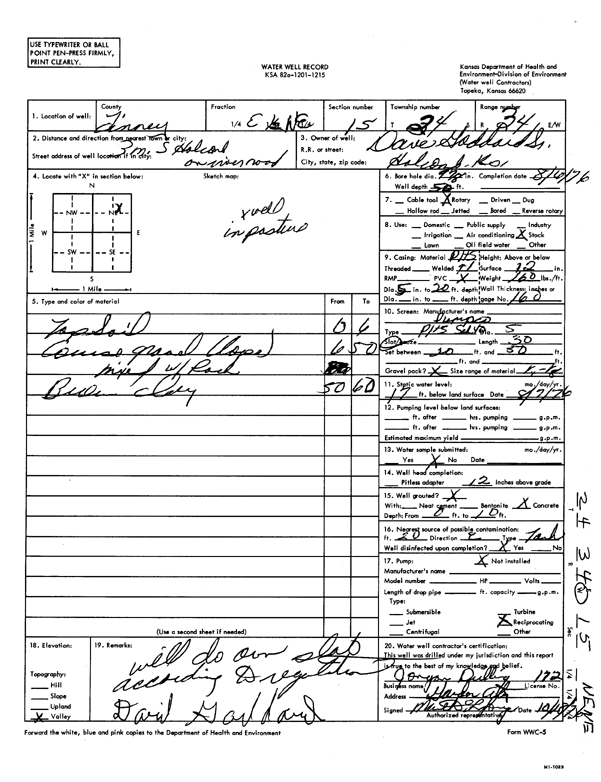 USE TYPEWRITER OR BALL
POINT PEN-PRESS FIRMLY,
PRINT CLEARLY.
WATER WELL RECORD
KSA 82a-1201-1215
Kansas Department of Health and
Environment-Division of Environment
(Water well Contractors)
Topeka, Kansas 66620
1. Location of well: County Finney Fraction 1/4 E NE Section number 15 Township number T 24 Range number R 34 E/W
2. Distance and direction from nearest town or city: 3 mi S Holcomb
Street address of well location if in city: on river road
3. Owner of well: Dave Goddard Sr.
R.R. or street:
City, state, zip code: Holcomb, Ks.
4. Locate with "X" in section below:
Sketch map:
N
NW NE X
W E
SW SE
S
1 Mile
1 Mile
x well
in pasture
5. Type and color of material From To
Top Soil 0 6
Course gravel (lope) 6 50
mixed w/ Rock
Brown Clay 50 60
(Use a second sheet if needed)
6. Bore hole dia. in. Completion date 8/10/76
Well depth 50 ft.
7. Cable tool X Rotary Driven Dug
Hollow rod Jetted Bored Reverse rotary
8. Use: Domestic Public supply Industry
Irrigation Air conditioning X Stock
Lawn Oil field water Other
9. Casing: Material Height: Above or below
Threaded Welded Surface 12 in.
RMP PVC X Weight 160 lbs./ft.
Dia. 5 in. to 20 ft. depth Wall Thickness: inches or
Dia. in. to ft. depth gage No. 160
10. Screen: Manufacturer's name
Type Dia. 5
Slot/gauze Length 30
Set between 20 ft. and 50 ft.
ft. and ft.
Gravel pack? X Size range of material
11. Static water level: mo./day/yr.
17 ft. below land surface Date 8/7/76
12. Pumping level below land surfaces:
ft. after hrs. pumping g.p.m.
ft. after hrs. pumping g.p.m.
Estimated maximum yield g.p.m.
13. Water sample submitted: mo./day/yr.
Yes X No Date
14. Well head completion:
Pitless adapter 12 Inches above grade
15. Well grouted? X
With: Neat cement Bentonite X Concrete
Depth: From 0 ft. to 10 ft.
16. Nearest source of possible contamination:
ft. 20 Direction E Type Tank
Well disinfected upon completion? X Yes No
17. Pump: X Not installed
Manufacturer's name
Model number HP Volts
Length of drop pipe ft. capacity g.p.m.
Type:
Submersible Turbine
Jet X Reciprocating
Centrifugal Other
18. Elevation:
Topography:
Hill
Slope
Upland
X Valley
19. Remarks:
will do own slab
according D regulation
David Goddard
20. Water well contractor's certification:
This well was drilled under my jurisdiction and this report
is true to the best of my knowledge and belief.
Business name License No. 192
Address
Signed Date
Authorized representative
Forward the white, blue and pink copies to the Department of Health and Environment
Form WWC-5
24 34 W 15 NENE
T R Sec 1/4 1/4 1/4